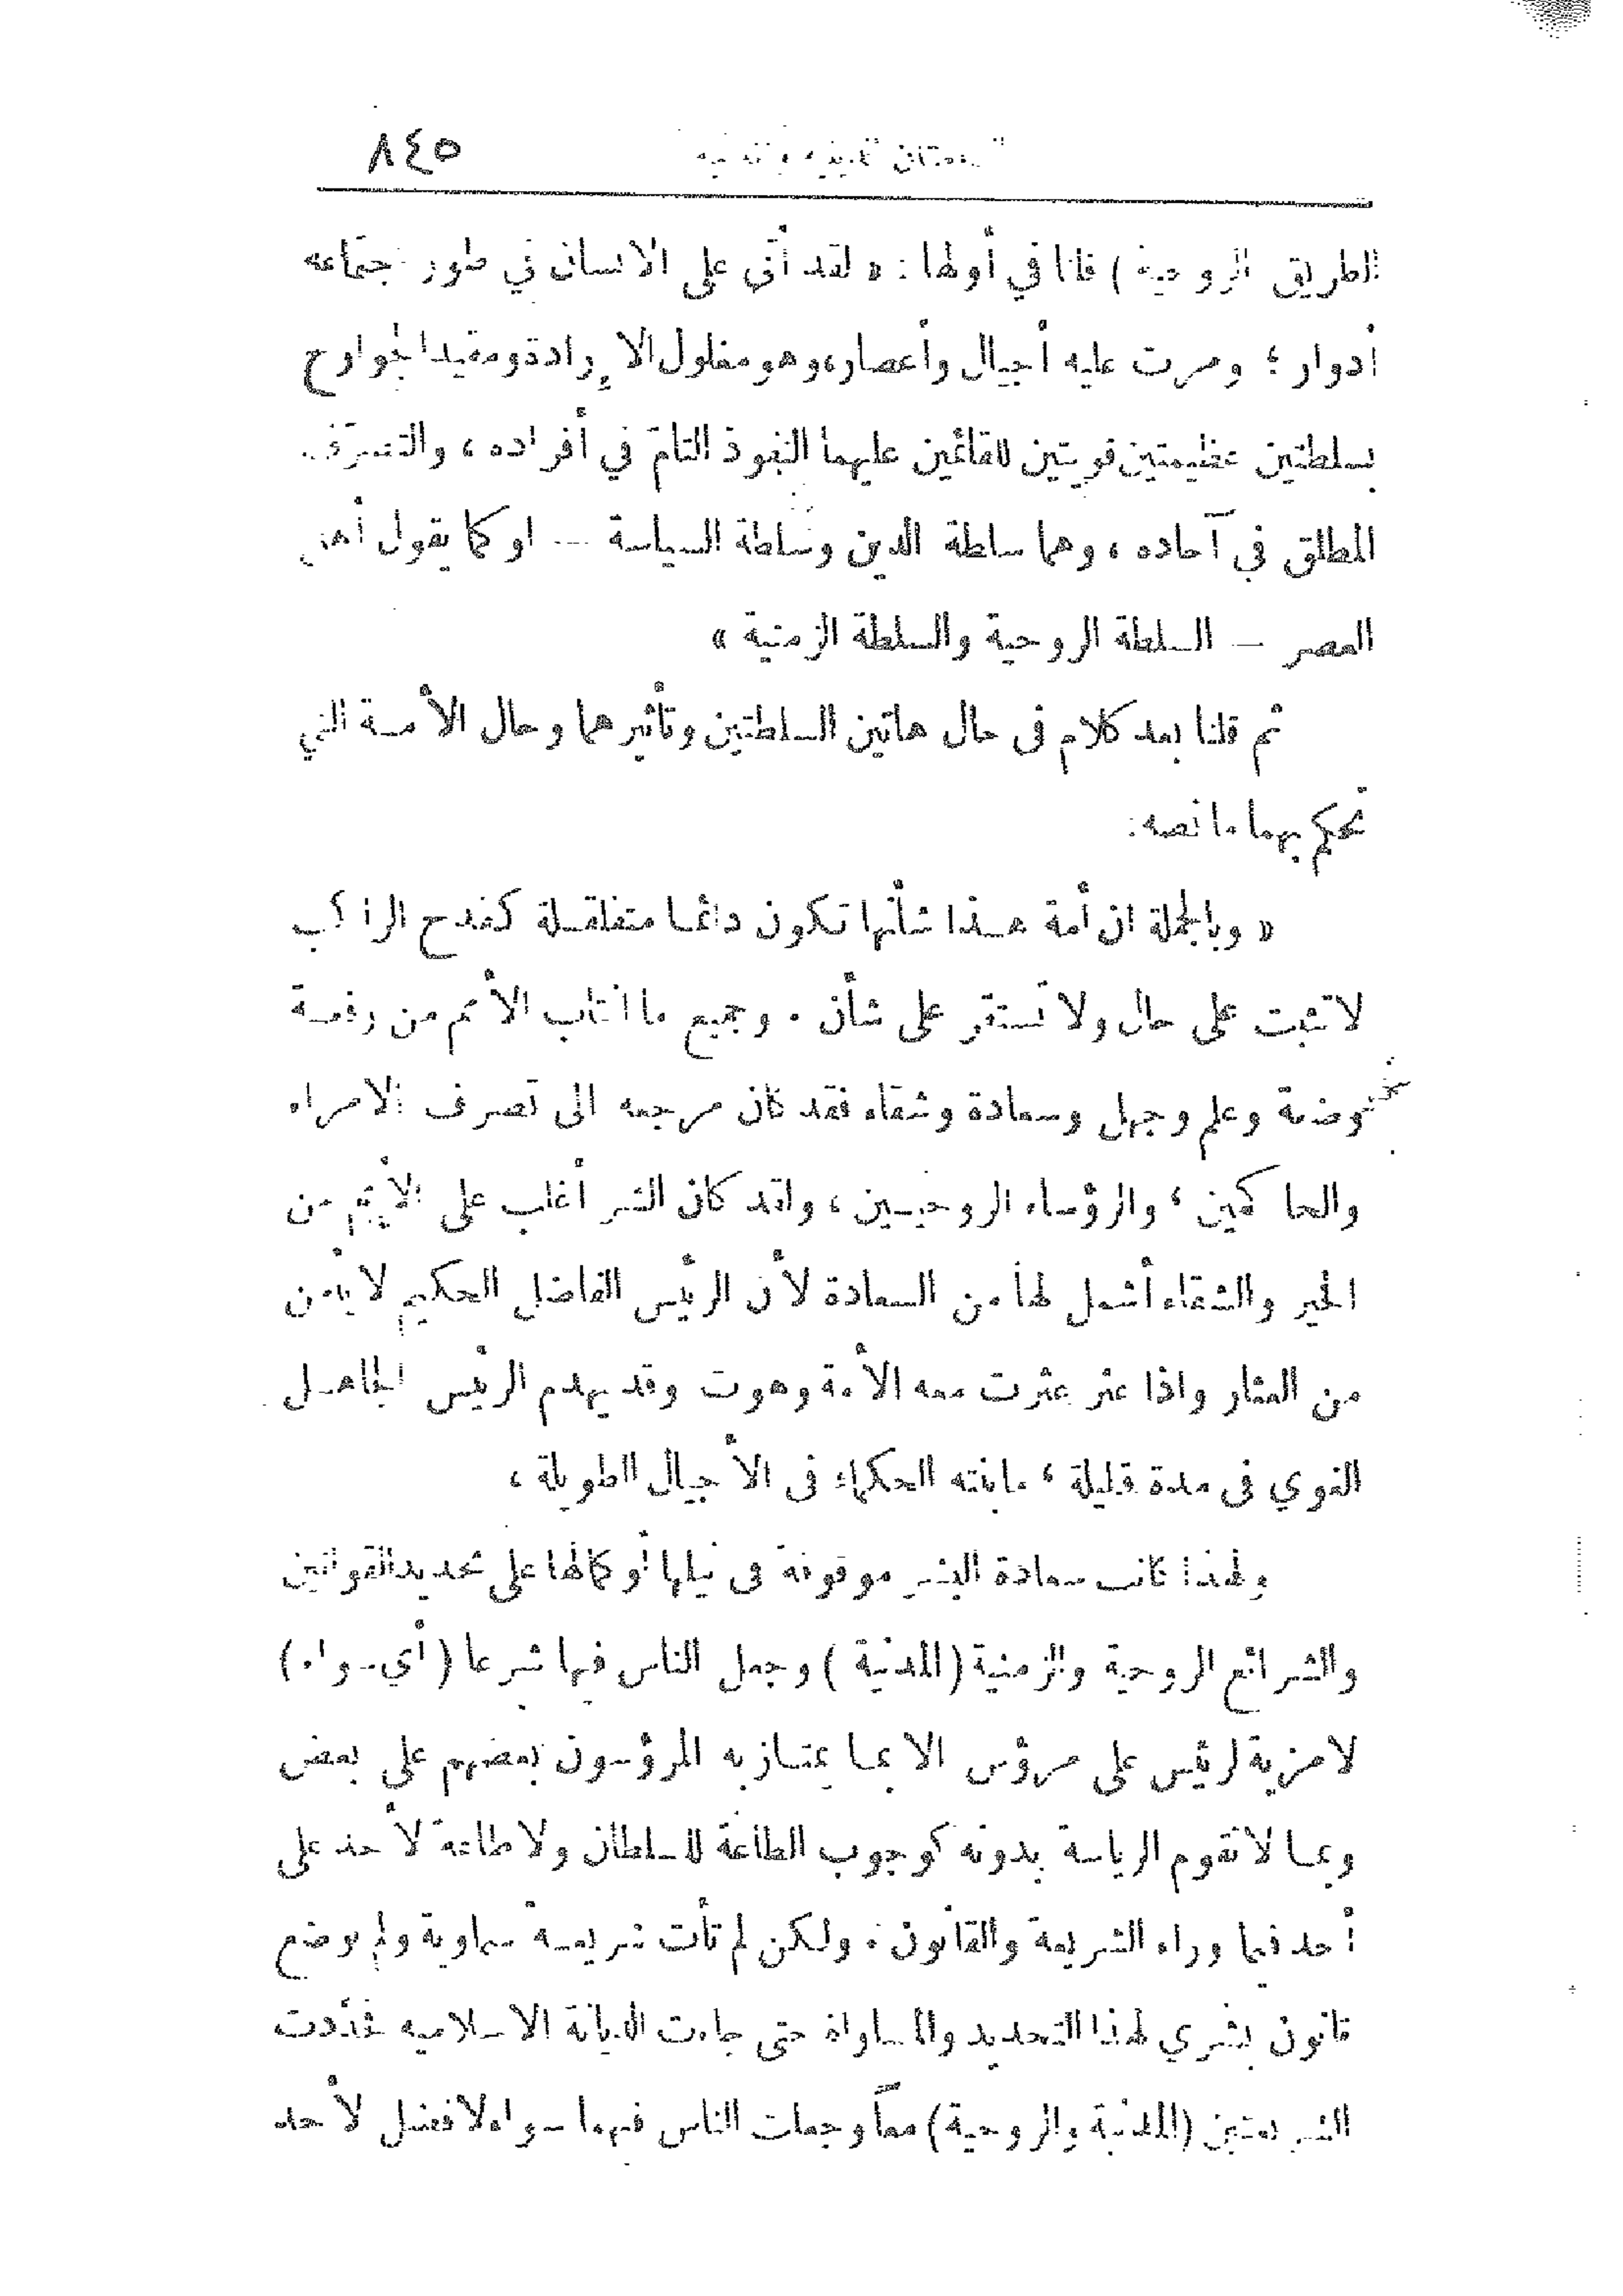 ٨٤٥
الطريق الروحية ) قلنا في أولها : « لقد أتى على الانسان في طور اجتماعه
أدوار ؛ ومرت عليه أجيال وأعصار، وهو مغلول الاٍرادة ومقيد الجوارح
بسلطتين عظيمتين قويتين للقائمين عليهما النفوذ التامّ في أفراده ، والتصرّف
المطلق في آحاده ، وهما سلطة الدين وسلطة السياسة — او كما يقول أهل
العصر — السلطة الروحية والسلطة الزمنية »
ثم قلنا بعد كلام فى حال هاتين السلطتين وتأثيرهما وحال الأمة التي
تحكم بهما ما نصه :
« وبالجملة ان أمة هذا شأنها تكون دائما متقلقلة كقدح الراكب
لا تثبت على حال ولا تستقر على شأن . وجميع ما انتاب الأمم من رفعة
وضعة وعلم وجهل وسعادة وشقاء فقد كان مرجعه الى تصرف الامراء
والحاكمين ؛ والرؤساء الروحيين ، ولقد كان الشر أغلب على الأمم من
الخير والشقاء أشمل لها من السعادة لأن الرئيس الفاضل الحكيم لا يأمن
من العثار واذا عثر عثرت معه الأمة وهوت وقد يهدم الرئيس الجاهل
القوي فى مدة قليلة ؛ ما بنته الحكماء فى الأجيال الطويلة ،
ولهذا كانت سعادة البشر موقوفة فى نيلها أو كمالها على تحديد القوانين
والشرائع الروحية والزمنية ( المدنية ) وجعل الناس فيها شرعا ( أي سواء )
لا مزية لرئيس على مرؤس الا بما يمتاز به المرؤسون بعضهم على بعض
وبما لا تقوم الرياسة بدونه كوجوب الطاعة للسلطان ولا طاعة لأحد على
أحد فيما وراء الشريعة والقانون . ولكن لم تأت شريعة سماوية ولم يوضع
قانون بشري لهذا التحديد والمساواة حتى جاءت الديانة الاسلامية فحدّدت
الشريعتين ( المدنية والروحية ) معاً وجعلت الناس فيهما سواء لا فضل لأحد